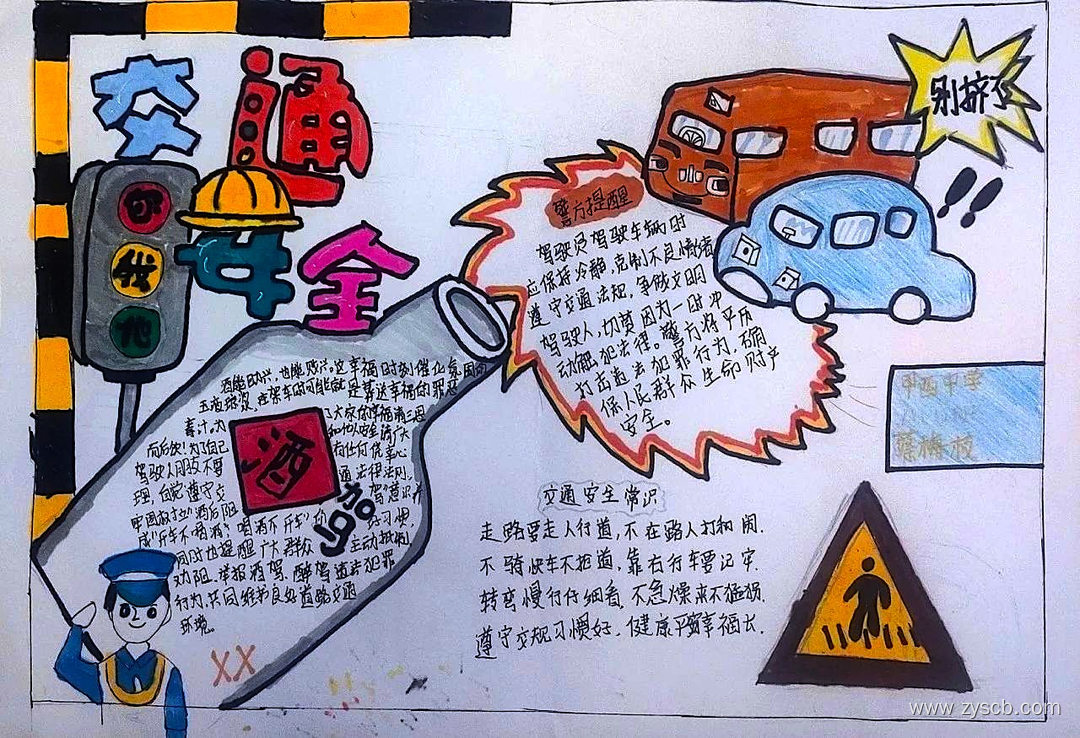 交通
安全
你
我
他
别挤了
!!
警方提醒
驾驶员驾驶车辆时
应保持冷静，克制不良情绪
遵守交通法规，争做文明
驾驶人，切莫因为一时冲
动触犯法律。警方将严厉
打击违法犯罪行为，确
保人民群众生命财产
安全。
酒能助兴，也能败兴。
毒汁。为
而后快！为了自己
和他人安全请广大
驾驶人朋友不要
有任何侥幸心
理，自觉遵守交
通法律法则，
牢固树立“酒后
成“开车不喝酒，喝酒不开车”的
好习惯，
同时也提醒广大群众
主动抵制
劝阻、举报酒驾、醉驾违法犯罪
行为，共同维护良好道路交通
环境。
酒
加
马
XX
甲西中学
蔡梅枝
交通安全常识
走路要走人行道，不在路人打和闹.
不骑快车不抢道，靠右行车要记牢.
转弯慢行仔细看，不急燥来不猛拐.
遵守交规习惯好，健康平安幸福长.
www.zyscb.com